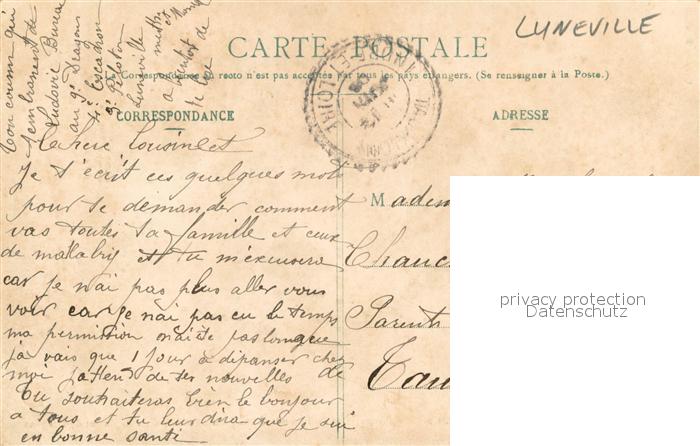 LUNEVILLE
CARTE POSTALE
La Correspondance au recto n'est pas acceptée par tous les pays étrangers. (Se renseigner à la Poste.)
CORRESPONDANCE
ADRESSE
Chere Cousine et
Je t'écrit ces quelques mots
pour te demander comment
vas toutes ta famille et ceux
de mallabry et tu m'excusera
car je n'ai pas plus aller vous
voir car je n'ai pas eu le temps
ma permission n'aiste pas longue
jà vais que 1 jour a dépanser chez
moi j'attend de tes nouvelles de
Tu souhaiteras bien le bonjour
a tous et tu leur dira que je sui
en bonne santé
Ton cousin qui
t'embrassent de
Ludovic
au 9e Dragons
4e Escadron
3e Peloton
Luneville
Madem
Chauc
Parenti
Tau
privacy protection
Datenschutz